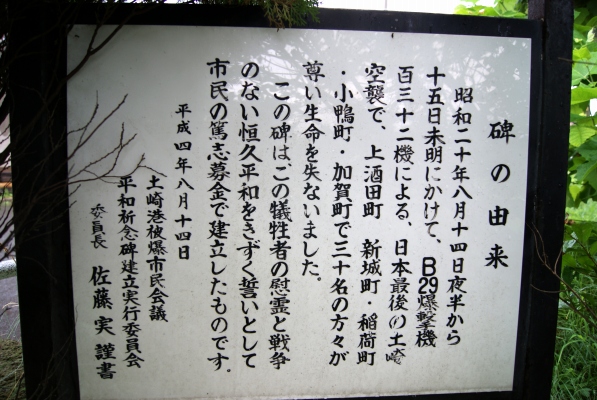 碑の由来
昭和二十年八月十四日夜半から
十五日未明にかけて、B29爆撃機
百三十二機による、日本最後の土崎
空襲で、上酒田町 新城町・稲荷町
・小鴨町・加賀町で三十名の方々が
尊い生命を失ないました。
この碑は、この犠牲者の慰霊と戦争
のない恒久平和をきずく誓いとして
市民の篤志募金で建立したものです。
平成四年八月十四日
土崎港被爆市民会議
平和祈念碑建立実行委員会
委員長 佐藤実 謹書